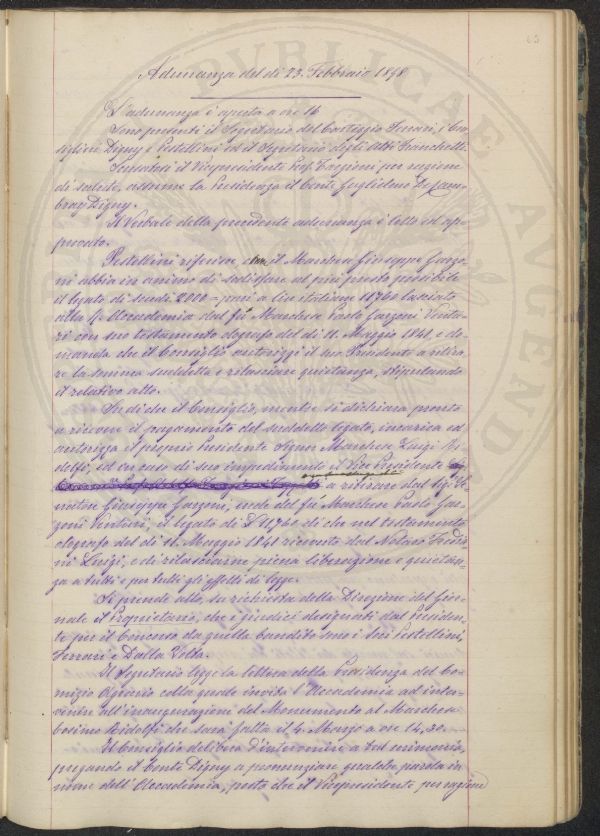 63
Adunanza del dì 23. Febbraio 1898
L'adunanza è aperta a ore 16
Sono presenti il Segretario del Carteggio Ferrari, i Con-
siglieri Digny e Pestellini ed il Segretario degli Atti Franchetti.
Scusatosi il Vicepresidente Prof. Targioni per ragione
di salute, assume la Presidenza il Conte Guglielmo De Cam-
bray Digny.
Il Verbale della precedente adunanza è letto ed ap-
provato.
Pestellini riferisce che il Marchese Giuseppe Garzo-
ni abbia in animo di sodisfare al più presto possibile
il legato di scudi 2000 = pari a lire italiane 11760 lasciato
alla R. Accademia dal fù Marchese Paolo Garzoni Ventu-
ri con suo testamento olografo del dì 11. Maggio 1841, e do-
manda che il Consiglio autorizzi il suo Presidente a ritira-
re la somma suddetta e rilasciare quietanza, stipulando
il relativo atto.
Su di che il Consiglio, mentre si dichiara pronto
a ricevere il pagamento del suddetto legato, incarica ed
autorizza il proprio Presidente Signor Marchese Luigi Ri-
dolfi, ed in caso di suo impedimento il Vice Presidente
a ritirare dal Sig. Se-
natore Giuseppe Garzoni, erede del fù Marchese Paolo Gar-
zoni Venturi, il legato di £ 11,760 di che nel testamento
olografo del dì 11. Maggio 1841 ricevuto dal Notaro
Luigi, e di rilasciarne piena liberazione e quietan-
za a tutti e per tutti gli effetti di legge.
Si prende atto, su richiesta della Direzione del Gior-
nale il Proprietario, che i giudici designati dal Presiden-
te per il Concorso da quella bandito sono i Soci Pestellini,
Ferrari e Dalla Volta.
Il Segretario legge la lettera della Presidenza del Co-
mizio Agrario colla quale invita l'Accademia ad inter-
venire all'inaugurazione del Monumento al Marchese
Cosimo Ridolfi che sarà fatta il 4. Marzo a ore 14,30.
Il Consiglio delibera d'intervenire a tal cerimonia,
pregando il Conte Digny a pronunziare qualche parola in
nome dell'Accademia, posto che il Vicepresidente per ragione